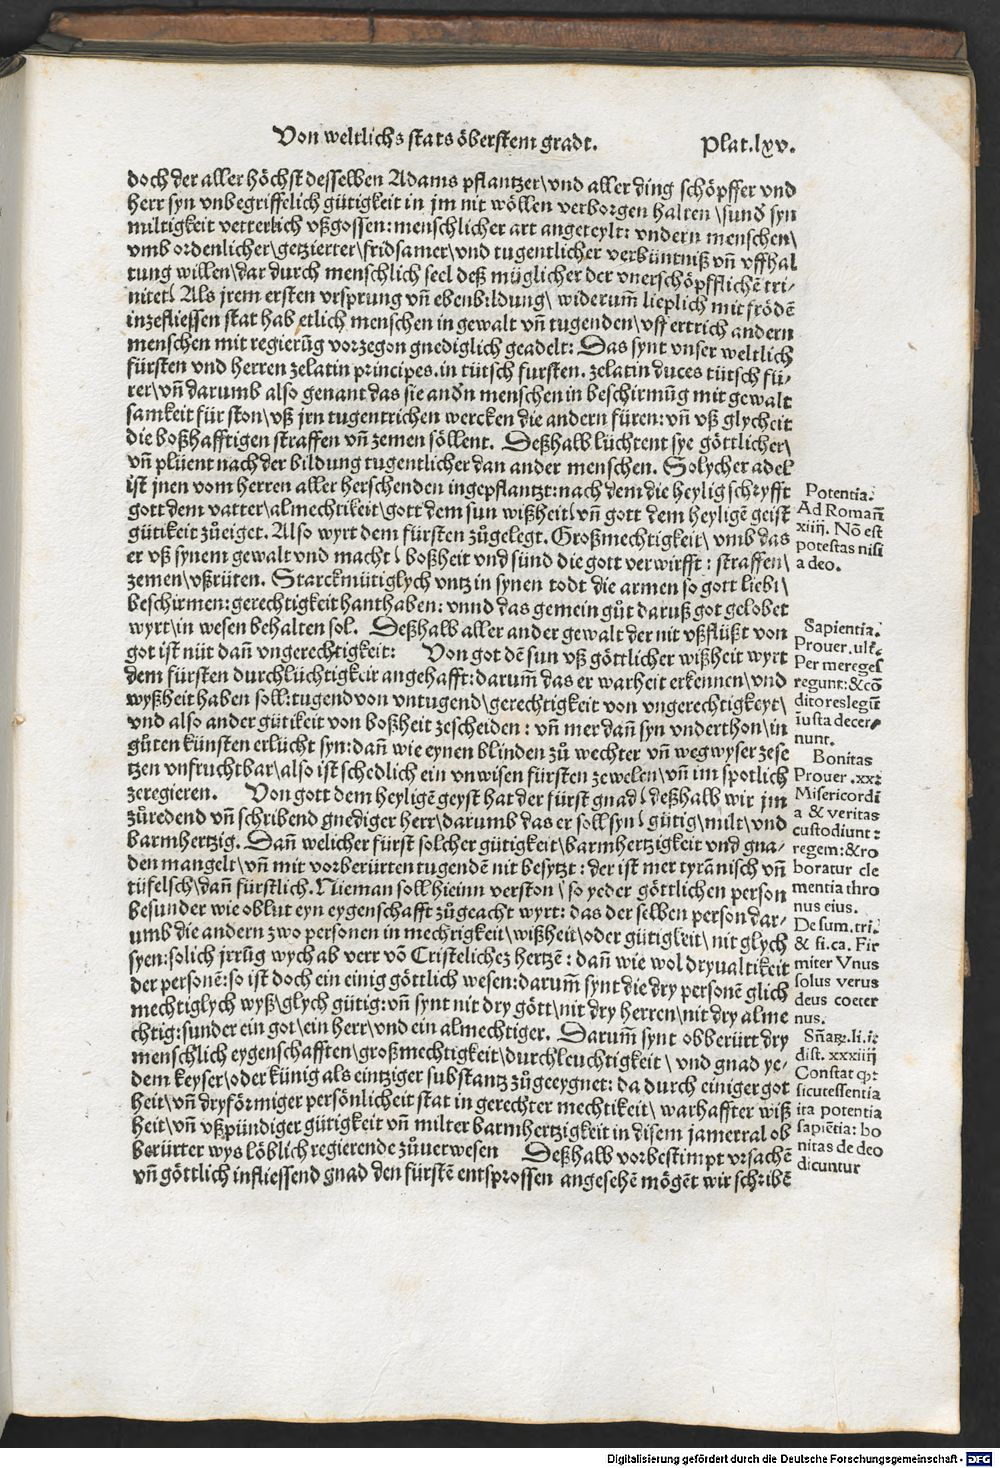 Von weltlichs stats öberstem gradt. Plat.lxv.
doch der aller höchst desselben Adams pflantzer\vnd aller ding schöpffer vnd
herr syn vnbegriffelich gütigkeit in jm nit wöllen verborgen halten \sunď syn
miltigkeit vetterlich vßgossen: menschlicher art angeteylt: vndern menschen\
vmb ordenlicher\getzierter\fridsamer\vnd tugentlicher verbüntniß vñ vffhal
tung willen\dar durch menschlich seel deß müglicher der vnerschöpfflichẽ tri-
nitet\ Als jrem ersten vrsprung vñ ebenbildung\ widerum̃ lieplich mit frödẽ
inzefliessen stat hab etlich menschen in gewalt vñ tugenden\vff ertrich andern
menschen mit regierũg vorzegon gnediglich geadelt: Das synt vnser weltlich
fürsten vnd herren zelatin principes.in tütsch fursten. zelatin duces tütsch fü-
rer\vñ darumb also genant das sie anďn menschen in beschirmũg mit gewalt
samkeit für ston\vß jrn tugentrichen wercken die andern füren: vñ vß glycheit
die boßhafftigen straffen vñ zemen söllent. Deßhalb lüchtent sye göttlicher\
vñ plüent nach der bildung tugentlicher dan ander menschen. Solycher adel
ist jnen vom herren aller herschenden ingepflantzt: nach dem die heylig schryfft
gott dem vatter\almechtikeit\gott dem sun wißheit\vñ gott dem heyligẽ geist
gütikeit zůeiget. Also wyrt dem fürsten zůgelegt. Großmechtigkeit\ vmb das
er vß synem gewalt vnd macht\ boßheit vnd sünd die gott verwirfft: straffen\
zemen\vßrüten. Starckmütiglych vntz in synen todt die armen so gott liebt\
beschirmen: gerechtigkeit hanthaben: vnnd das gemein gůt daruß got gelobet
wyrt\in wesen behalten sol. Deßhalb aller ander gewalt der nit vßflüßt von
got ist nüt dañ vngerechtigkeit: Von got dẽ sun vß göttlicher wißheit wyrt
dem fürsten durchlüchtigkeit angehafft: darum̃ das er warheit erkennen\vnd
wyßheit haben soll: tugend von vntugend\gerechtigkeit von vngerechtigkeyt\
vnd also ander gütikeit von boßheit zescheiden: vñ mer dañ syn vnderthon\in
gůten künsten erlücht syn: dañ wie eynen blinden zů wechter vñ wegwyser zese
tzen vnfruchtbar\also ist schedlich ein vnwisen fürsten zewelen\vñ im spotlich
zeregieren. Von gott dem heyligẽ geyst hat der fürst gnad\ deßhalb wir jm
zůredend vñ schribend gnediger herr\darumb das er soll syn\ gütig\milt\vnd
barmhertzig. Dañ welicher fürst solcher gütigkeit\barmhertzigkeit vnd gna-
den mangelt\vñ mit vorberürten tugendẽ nit besytzt: der ist mer tyrãnisch vñ
tüfelsch\dañ fürstlich. Nieman soll hieinn verston\ so yeder göttlichen person
besunder wie oblut eyn eygenschafft zůgeacht wyrt: das der selben person dar-
umb die andern zwo personen in mechtigkeit\wißheit\oder gütigkeit\nit glych
syen: solich jrrũg wych ab verr võ Cristelichez hertzẽ: dañ wie wol dryualtikeit
der personẽ: so ist doch ein einig göttlich wesen: darum̃ synt die dry personẽ glich
mechtiglych wyß\glych gütig: vñ synt nit dry gött\nit dry herren\nit dry alme
chtig: sunder ein got\ein herr\vnd ein almechtiger. Darum̃ synt obberürt dry
menschlich eygenschafften\großmechtigkeit\durchleuchtigkeit\ vnd gnad ye-
dem keyser\oder künig als eintziger substantz zůgeeygnet: da durch einiger got
heit\vñ dryförmiger persönlicheit stat in gerechter mechtikeit\ warhaffter wiß
heit\vñ vßpündiger gütigkeit vñ milter barmhertzigkeit in disem jamerral ob
berürter wys löblich regierende zůuerwesen Deßhalb vorbestimpt vrsachẽ
vñ göttlich infliessend gnad den fürstẽ entsprossen angesehẽ mögẽt wir schribẽ
Potentia.
Ad Romañ
xiiij. Nõ est
potestas nisi
a deo.
Sapientia.
Prouer. vlt.
Per me reges
regunt: & cõ
ditores legũ
iusta decer-
nunt.
Bonitas
Prouer .xx:
Misericordi
a & veritas
custodiunt:
regem: & ro
boratur cle
mentia thro
nus eius.
De sum. tri.
& fi. ca. Fir
miter Vnus
solus verus
deus coeter
nus.
Sñaꝝ. li. i:
dist. xxxiiij
Constat ꝙ:
sicut essentia
ita potentia
sapiẽtia: bo
nitas de deo
dicuntur
Digitalisierung gefördert durch die Deutsche Forschungsgemeinschaft - DFG